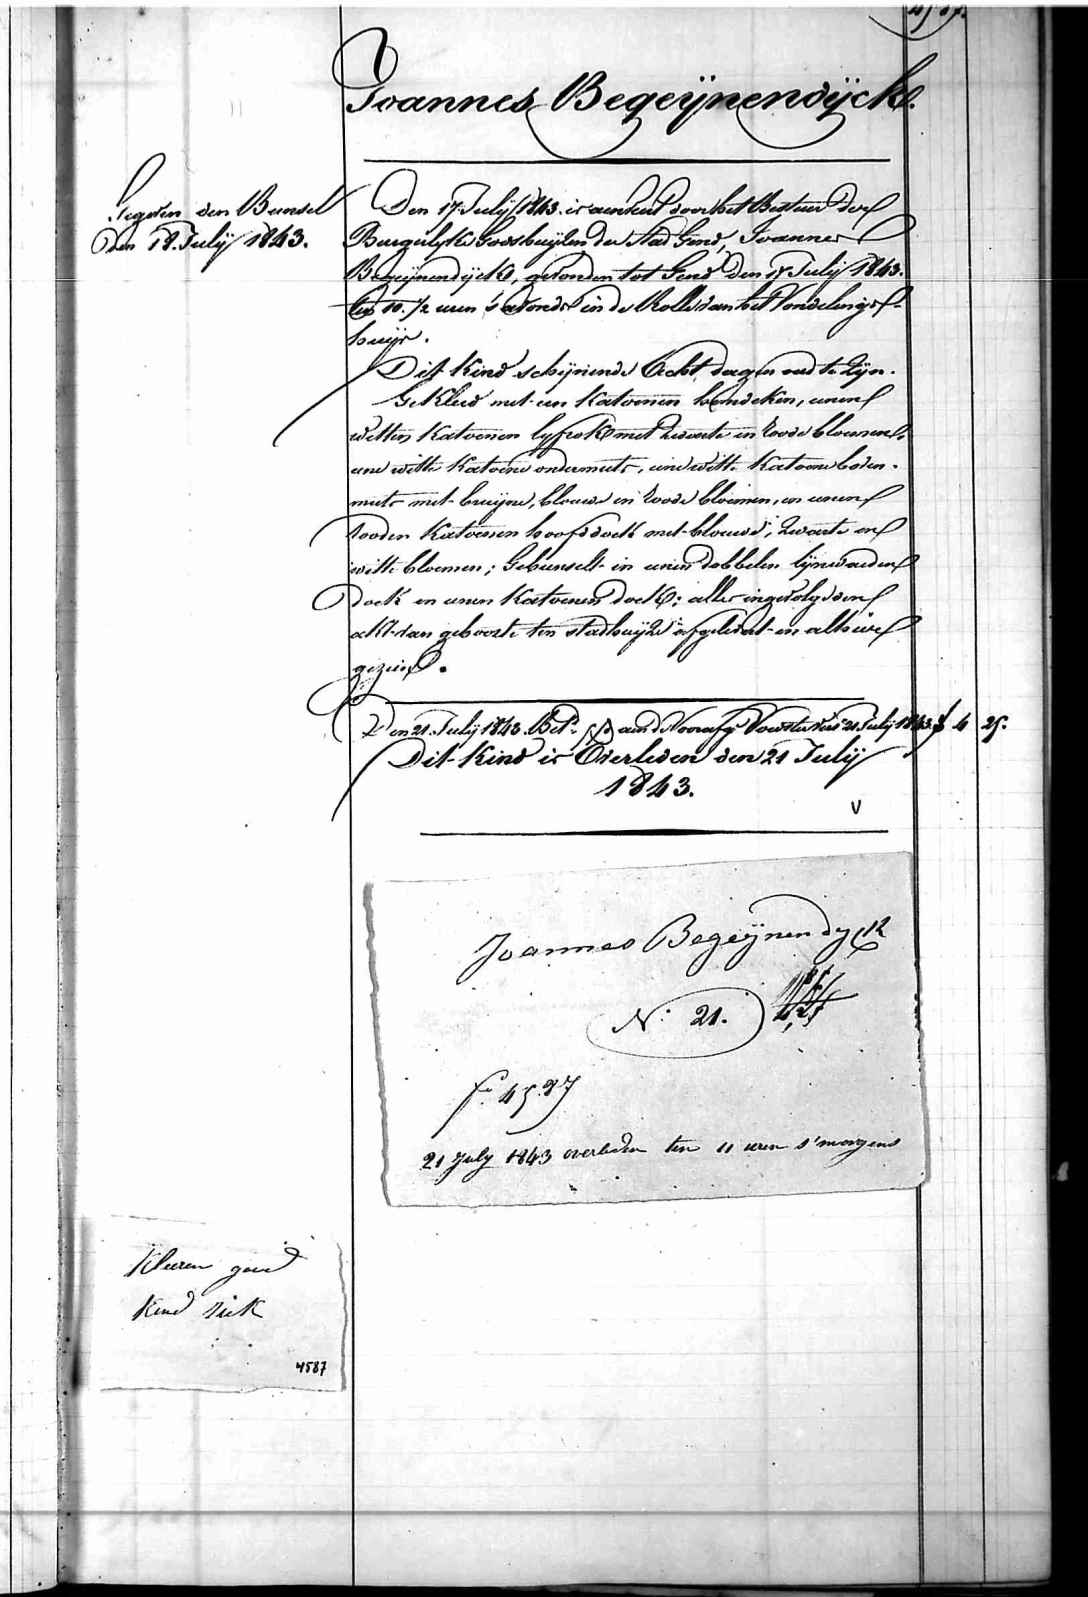 4587.
Joannes Begeÿnendÿck.
Gegeven den Bunsel
den 18. Julÿ 1843.
Den 17 Julÿ 1843. is aenveerd door het Bestuer der
Burgelyke Godshuyzen der stad Gend, Joannes
Begeijnendijck, gevonden tot Gend den 17 Julij 1843.
ten 10. 1/2 uren 's avonds in de Rolle van het Vondelings-
huijs.
Dit Kind schijnende Acht dagen oud te Zijn.
Gekleed met een Katoenen hemdeken, eenen
witten Katoenen lyfrok met zwarte en roode bloemen,
eene witte Katoene ondermuts, eene witte Katoene boven-
muts met bruijne, blauwe en roode bloemen, en eenen
rooden Katoenen hoofddoek met blauwe, zwarte en
witte bloemen; Gebunselt in eenen dobbelen lijnwaeden
doek en eenen Katoenen doek; alles ingevolge den
akt van geboorte ten stadhuijze afgeleverd en alhier
gezien.
Den 21. Julij 1843 Bet. aan de Voedster den 21 Julij 1843. f 4 25.
Dit Kind is Overleden den 21 Julÿ
1843.
V
Joannes Begeÿnendyck
N. 21.
f. 4587
21 July 1843 overleden ten 11 uren s'morgens
Kleeren goed
Kind siek
4587